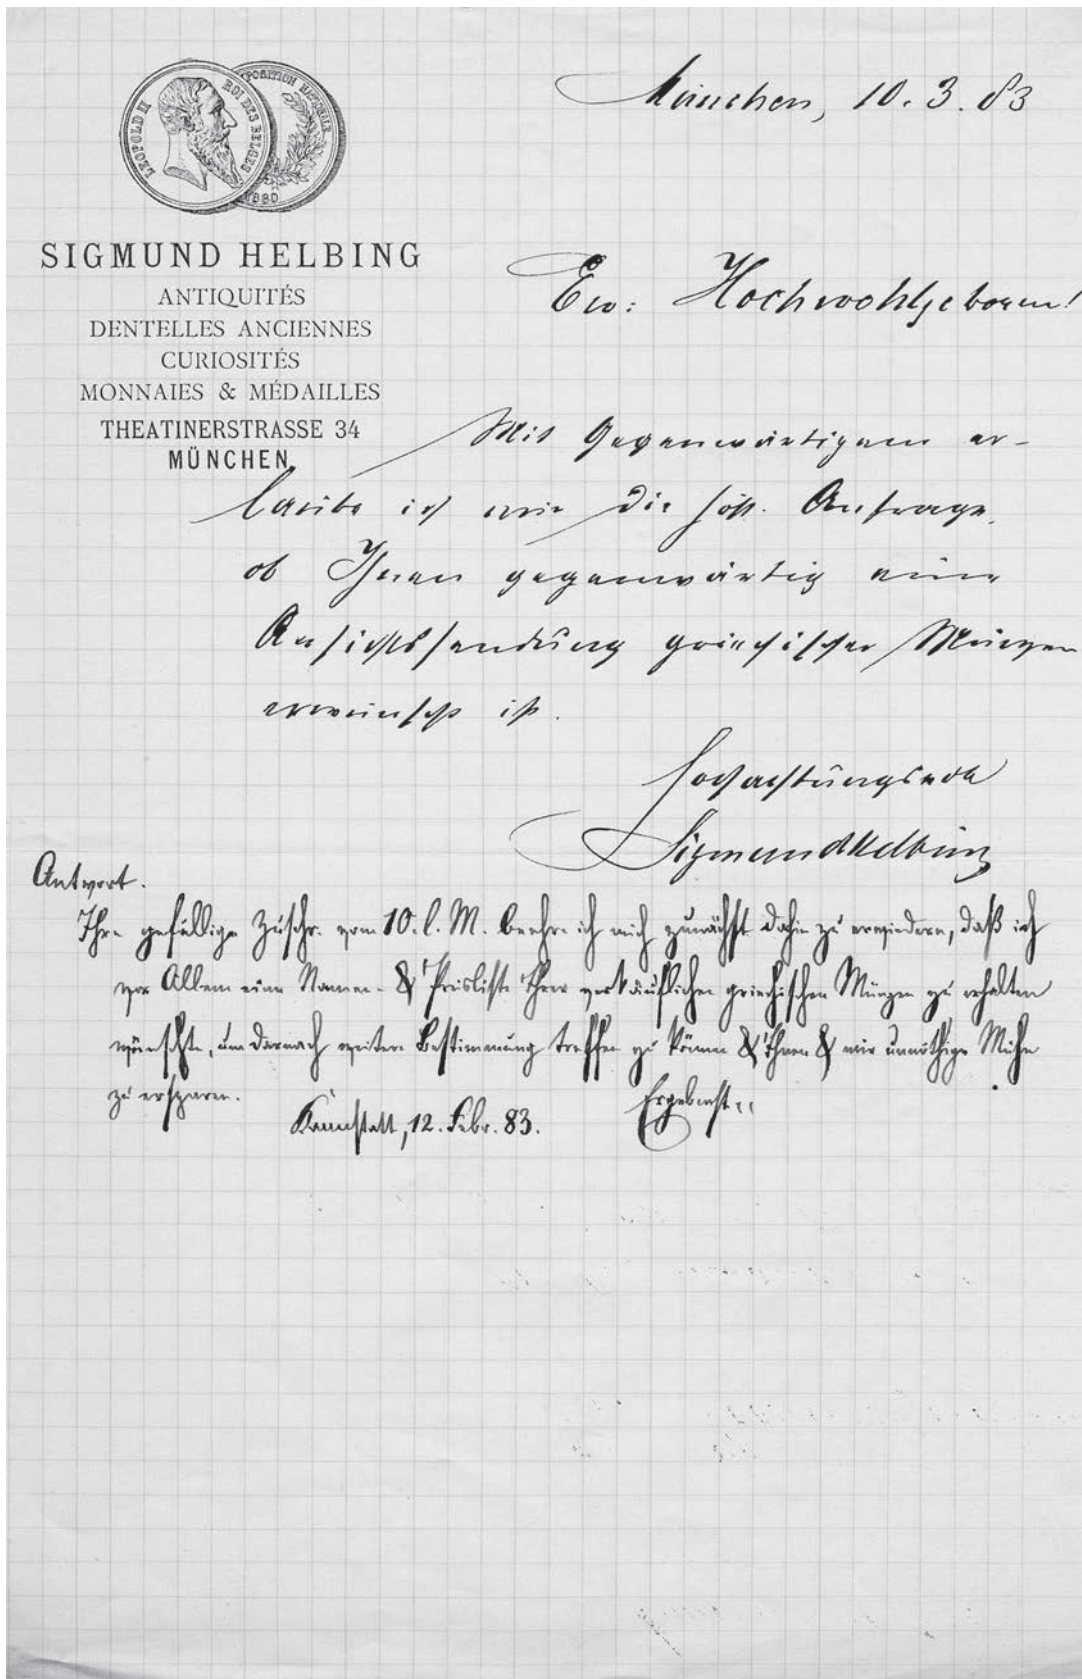 LEOPOLD II ROI DES BELGES
POSITION NATIONALE
1880
München, 10. 3. 83
SIGMUND HELBING
ANTIQUITÉS
DENTELLES ANCIENNES
CURIOSITÉS
MONNAIES & MÉDAILLES
THEATINERSTRASSE 34
MÜNCHEN
Ew: Hochwohlgeboren!
Mit Gegenwärtigem er-
laube ich mir die höfl. Anfrage,
ob Ihnen gegenwärtig eine
Ansichtssendung griechischer Münzen
erwünscht ist.
Hochachtungsvoll
Sigmund Helbing
Antwort.
Ihre gefällige Zuschr. vom 10. l. M. beehre ich mich zunächst dahin zu erwiedern, daß ich
vor Allem eine Namen- & Preisliste Ihrer verkäuflichen griechischen Münzen zu erhalten
wünschte, um darnach weitere Bestimmung treffen zu können & Ihnen & mir unnöthige Mühe
zu ersparen.
Ergebenst,,
Kannstatt, 12. Febr. 83.